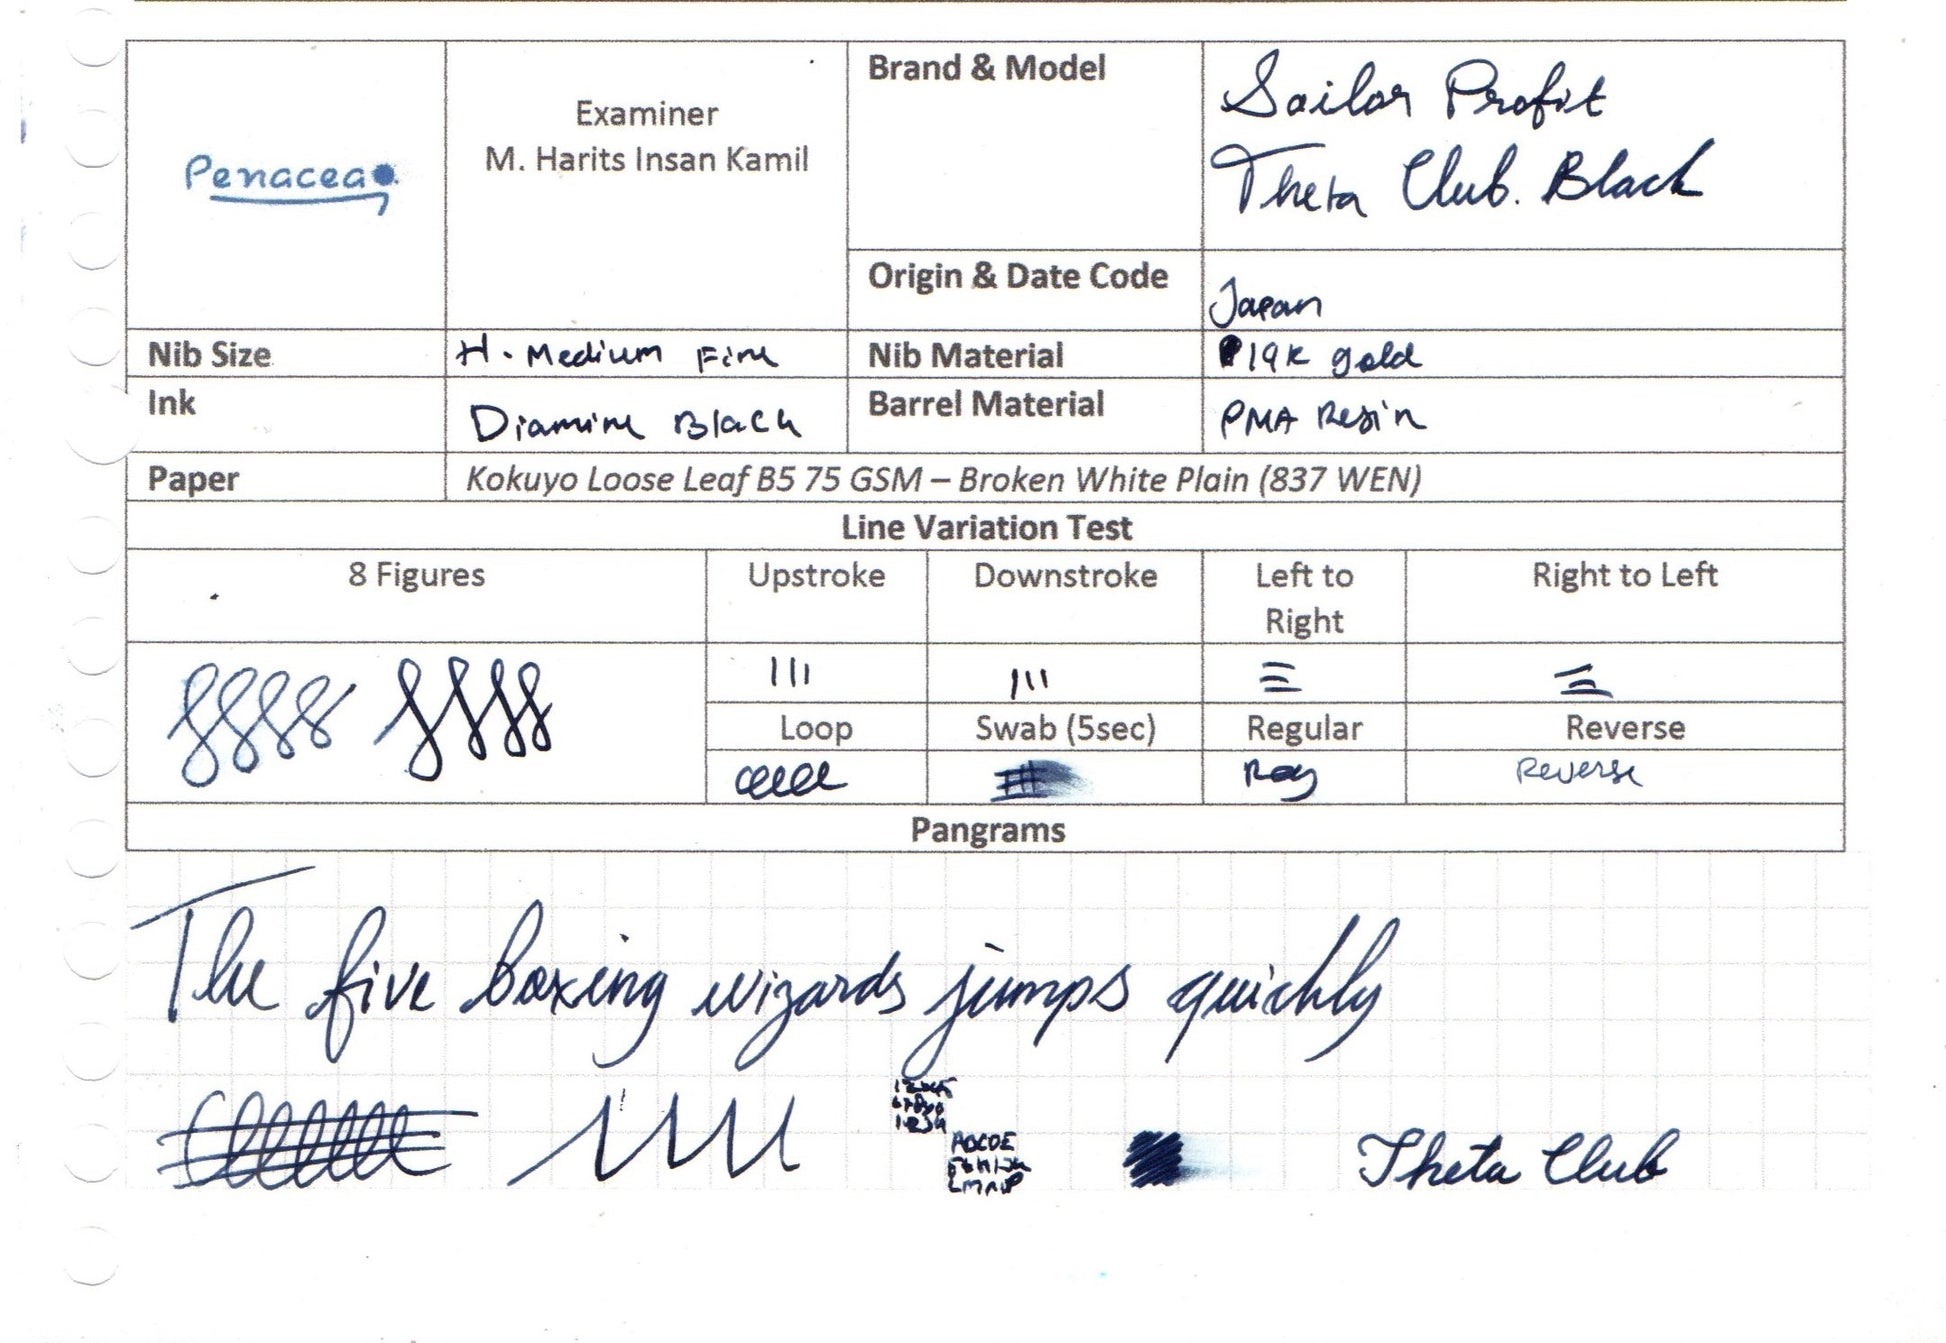 Penacea
Examiner
M. Harits Insan Kamil
Brand & Model
Sailor Profit
Theta Club. Black
Origin & Date Code
Japan
Nib Size
H. Medium Fine
Nib Material
19k gold
Ink
Diamine Black
Barrel Material
PMA Resin
Paper
Kokuyo Loose Leaf B5 75 GSM – Broken White Plain (837 WEN)
Line Variation Test
8 Figures
Upstroke
Downstroke
Left to
Right
Right to Left
Loop
Swab (5sec)
Regular
Reverse
Reg
Reverse
Pangrams
The five boxing wizards jumps quickly
ABCDE
Theta Club